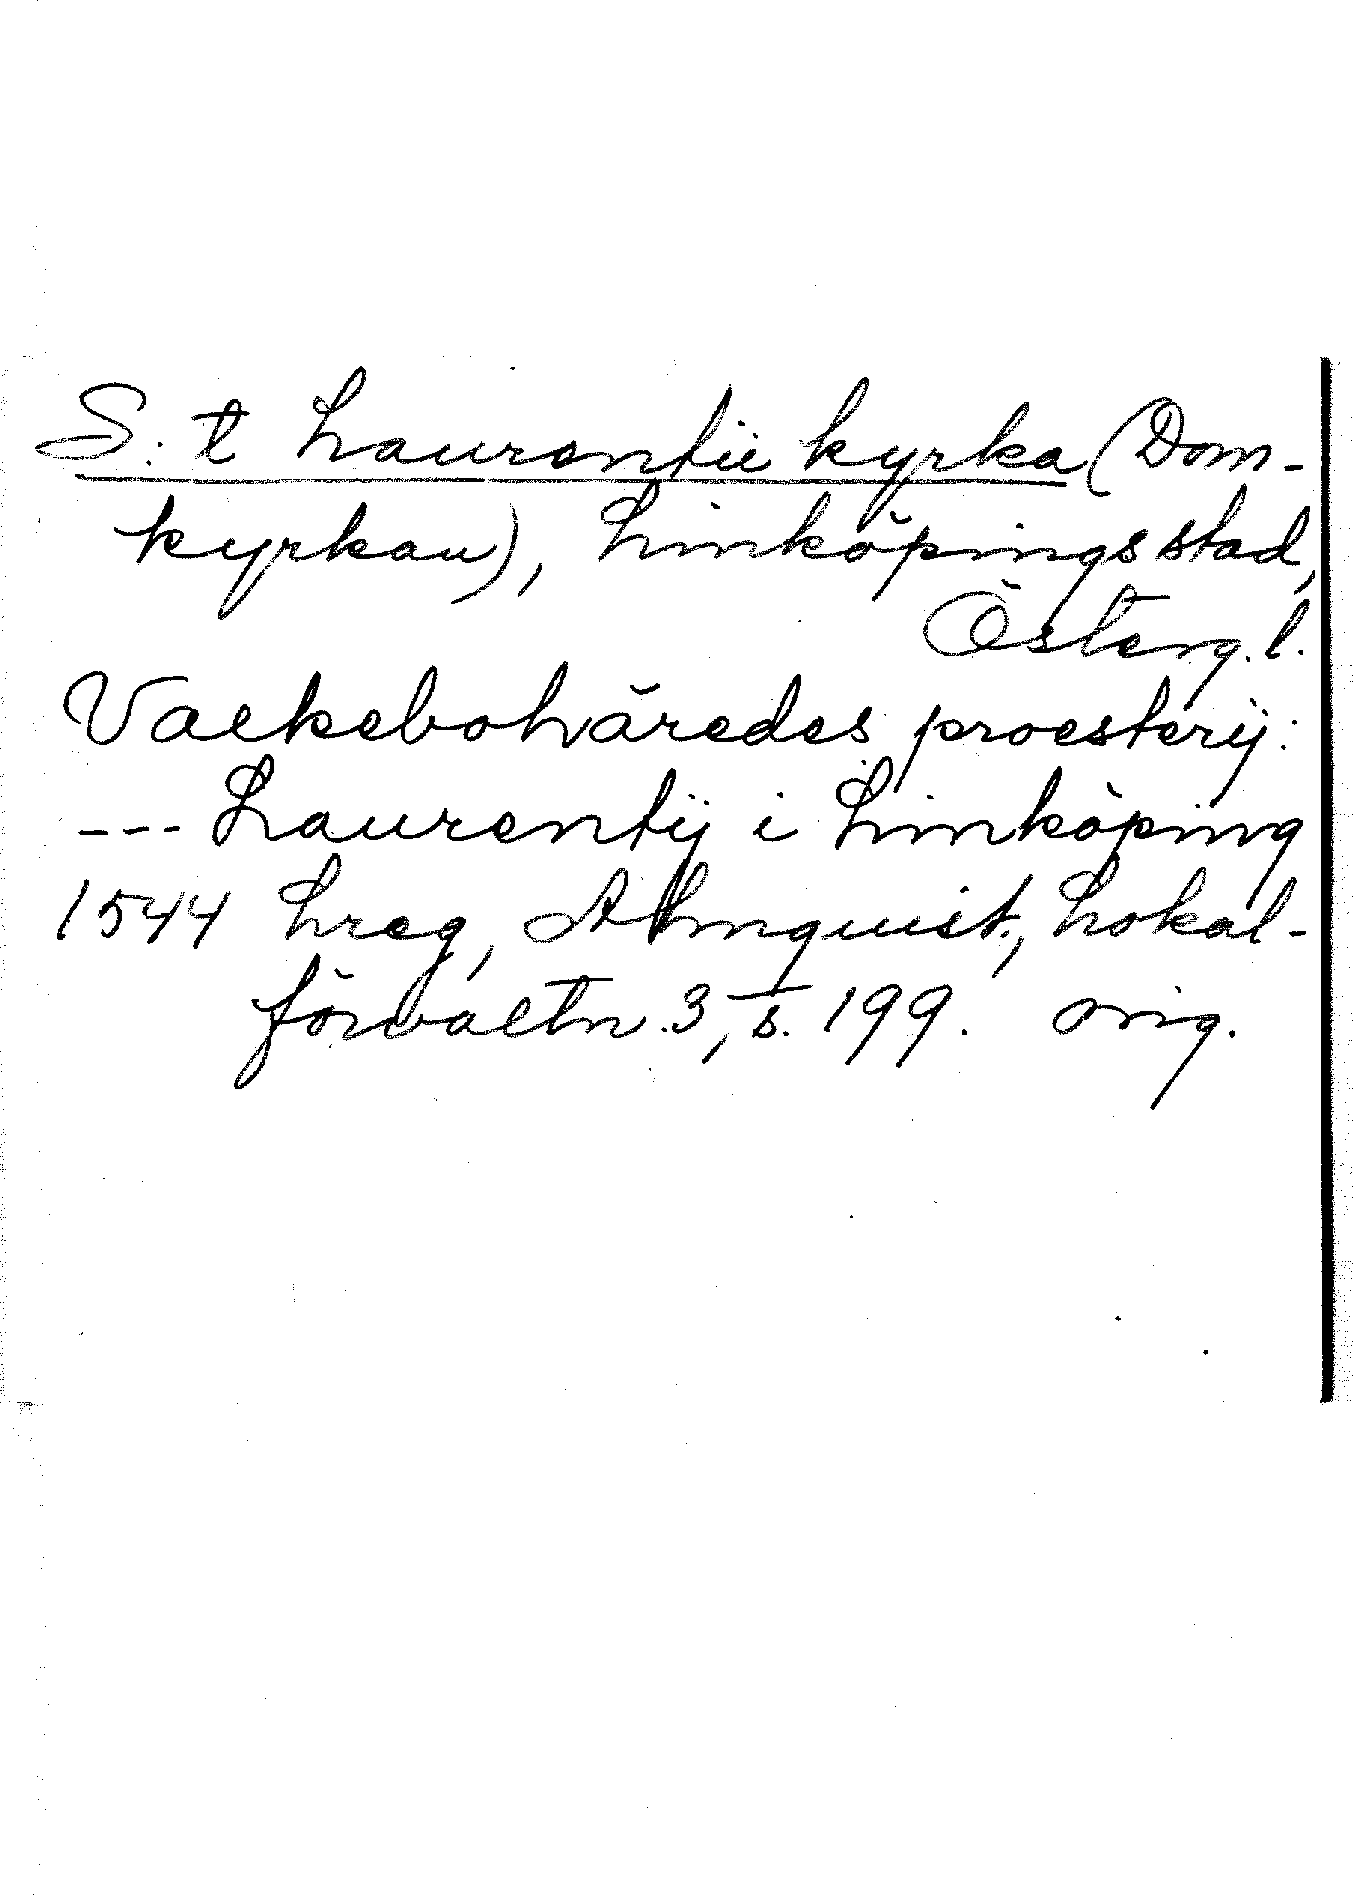 S:t Laurentii kyrka (Dom-
kyrkan), Linköpings stad,
Österg. l.
Valkebohäredes proesterij:
--- Laurentij i Linköping
1544 Lreg, Almquist, Lokal-
förvaltn. 3, s. 199. orig.